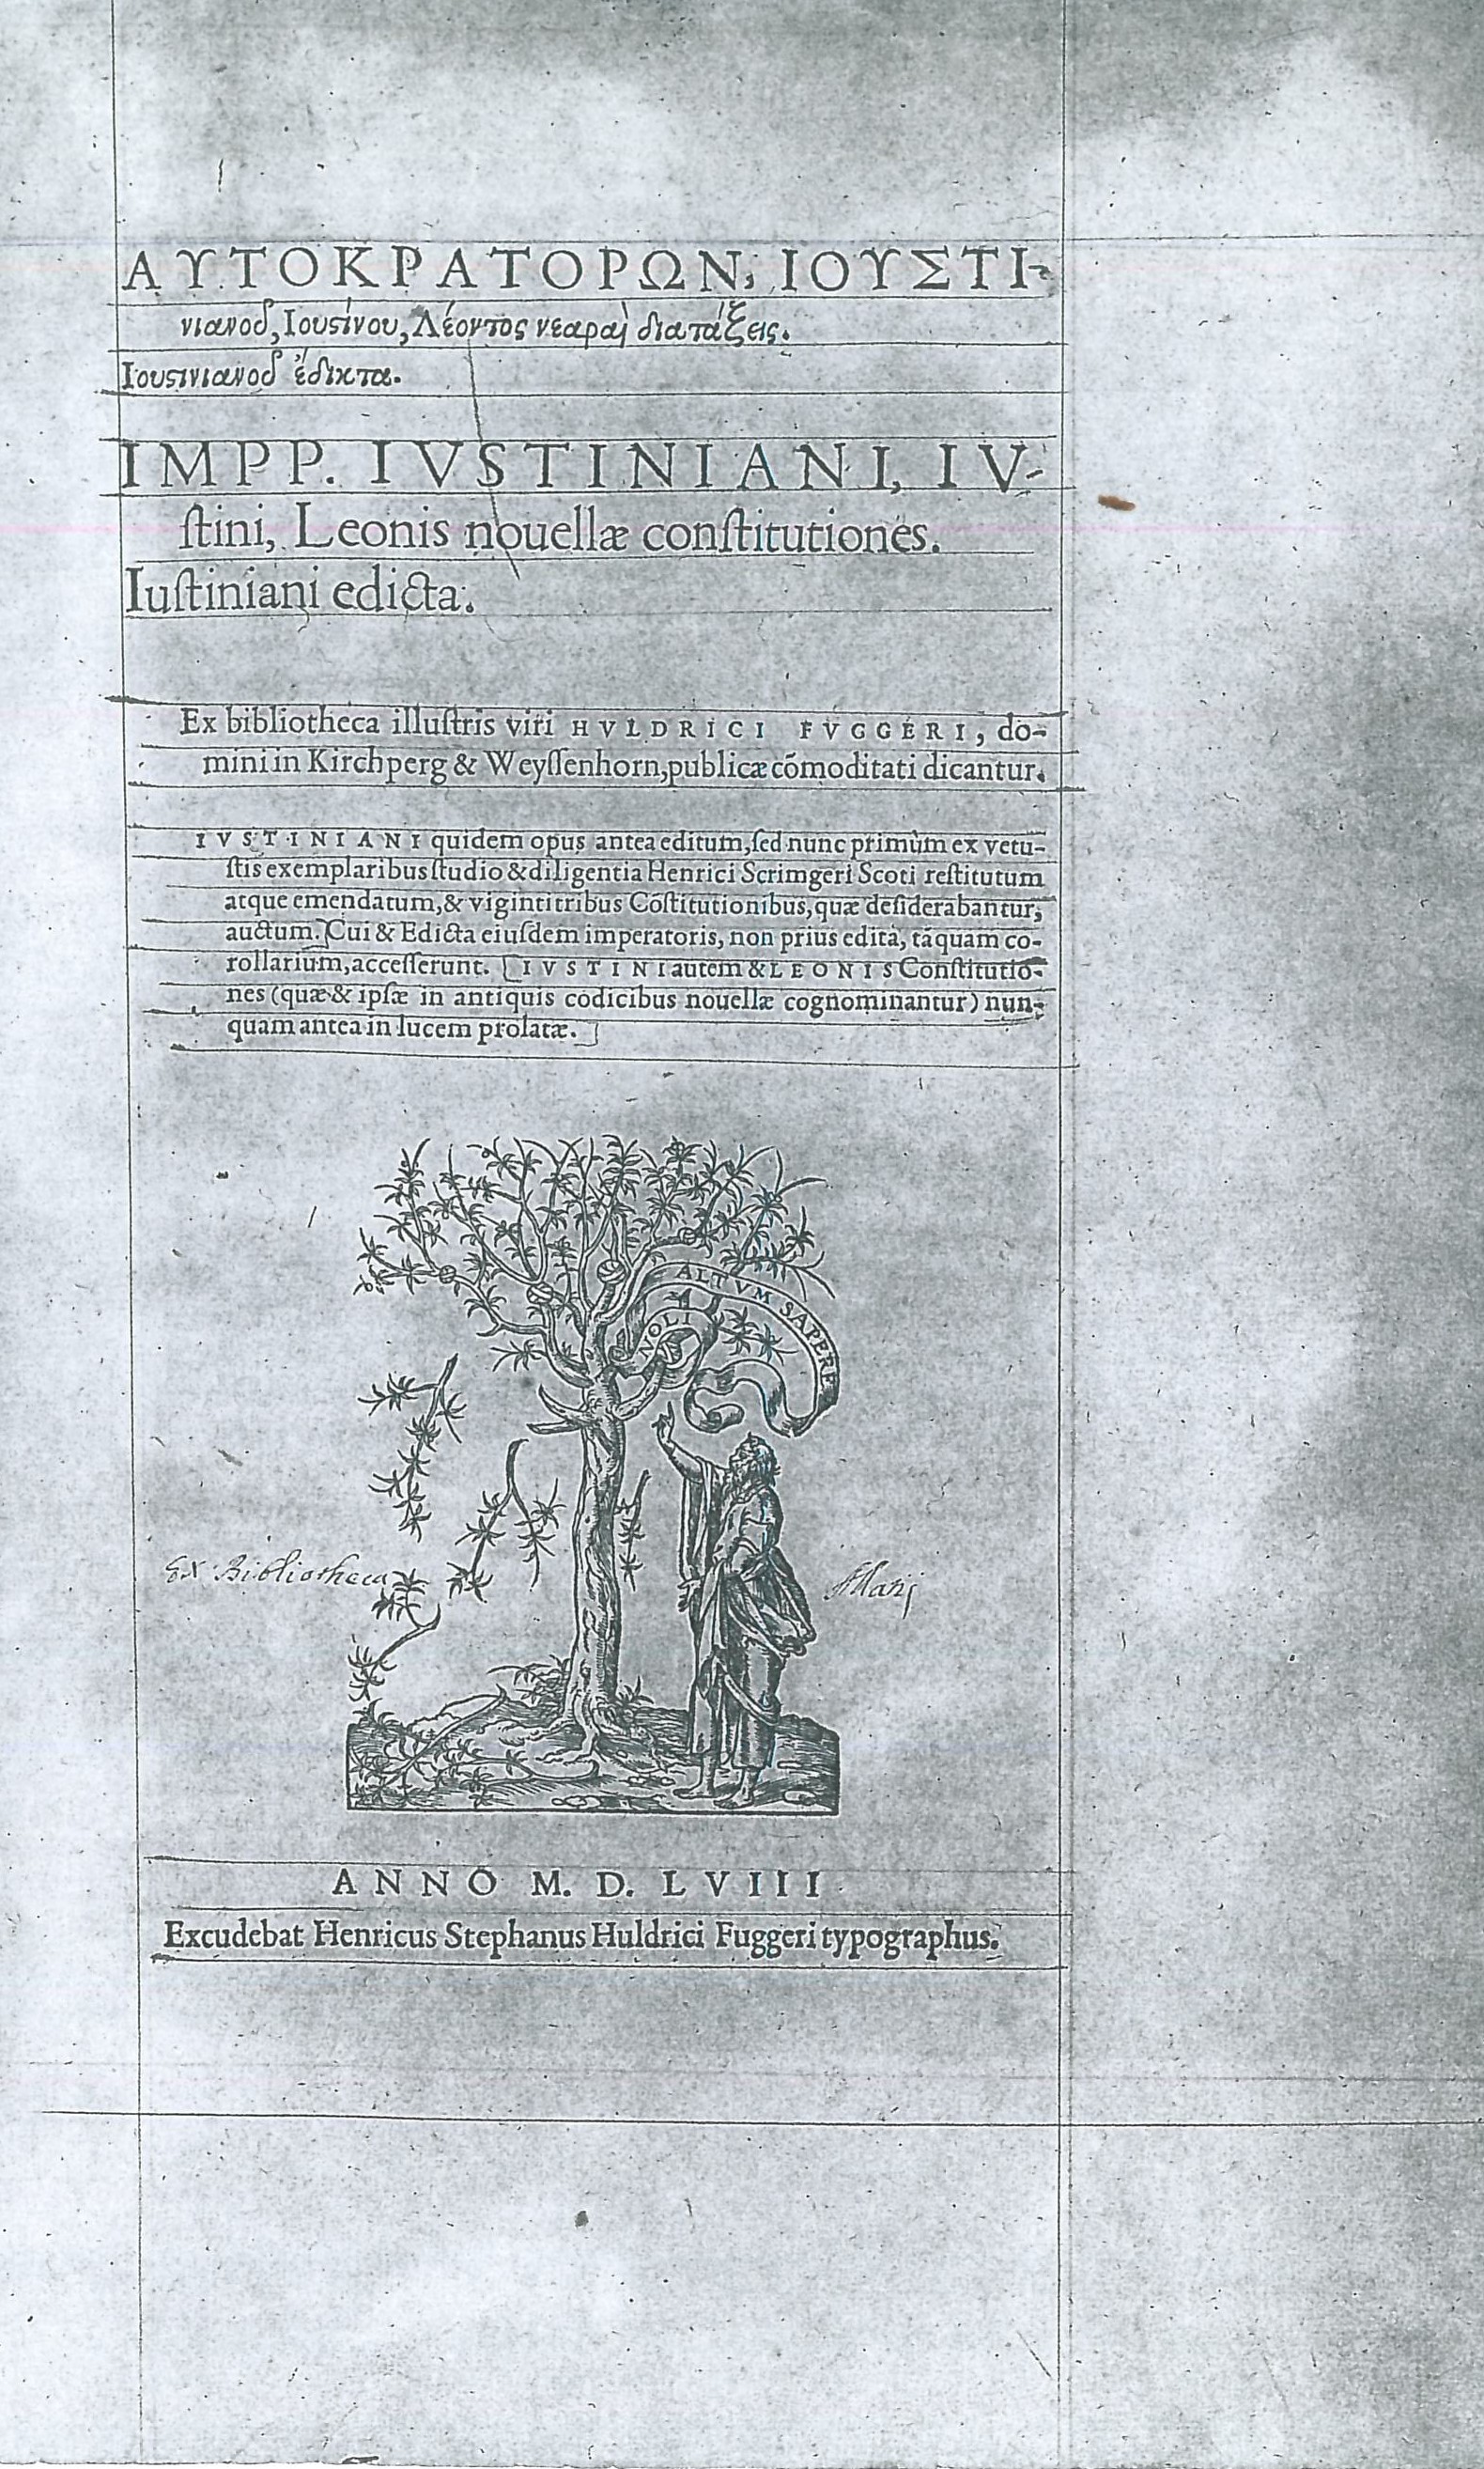 ΑΥΤΟΚΡΑΤΟΡΩΝ, ΙΟΥΣΤΙ-
νιανοῦ, Ιουστίνου, Λέοντος νεαραὶ διατάξεις.
Ιουστινιανοῦ ἔδικτα.
IMPP. IVSTINIANI, IV-
ſtini, Leonis nouellæ conſtitutiones.
Iuſtiniani edicta.
Ex bibliotheca illuſtris viri HVLDRICI FVGGERI, do-
mini in Kirchperg & Weyſſenhorn, publicæ cōmoditati dicantur.
IVSTINIANI quidem opus antea editum, ſed nunc primùm ex vetu-
ſtis exemplaribus ſtudio & diligentia Henrici Scrimgeri Scoti reſtitutum
atque emendatum, & viginti tribus Cōſtitutionibus, quæ deſiderabantur,
auctum. Cui & Edicta eiuſdem imperatoris, non prius edita, tāquam co-
rollarium, acceſſerunt. IVSTINI autem & LEONIS Conſtitutio-
nes (quæ & ipſæ in antiquis codicibus nouellæ cognominantur) nun-
quam antea in lucem prolatæ.
NOLI ALTVM SAPERE
Ex Bibliotheca
ANNO M. D. LVIII
Excudebat Henricus Stephanus Huldrici Fuggeri typographus.